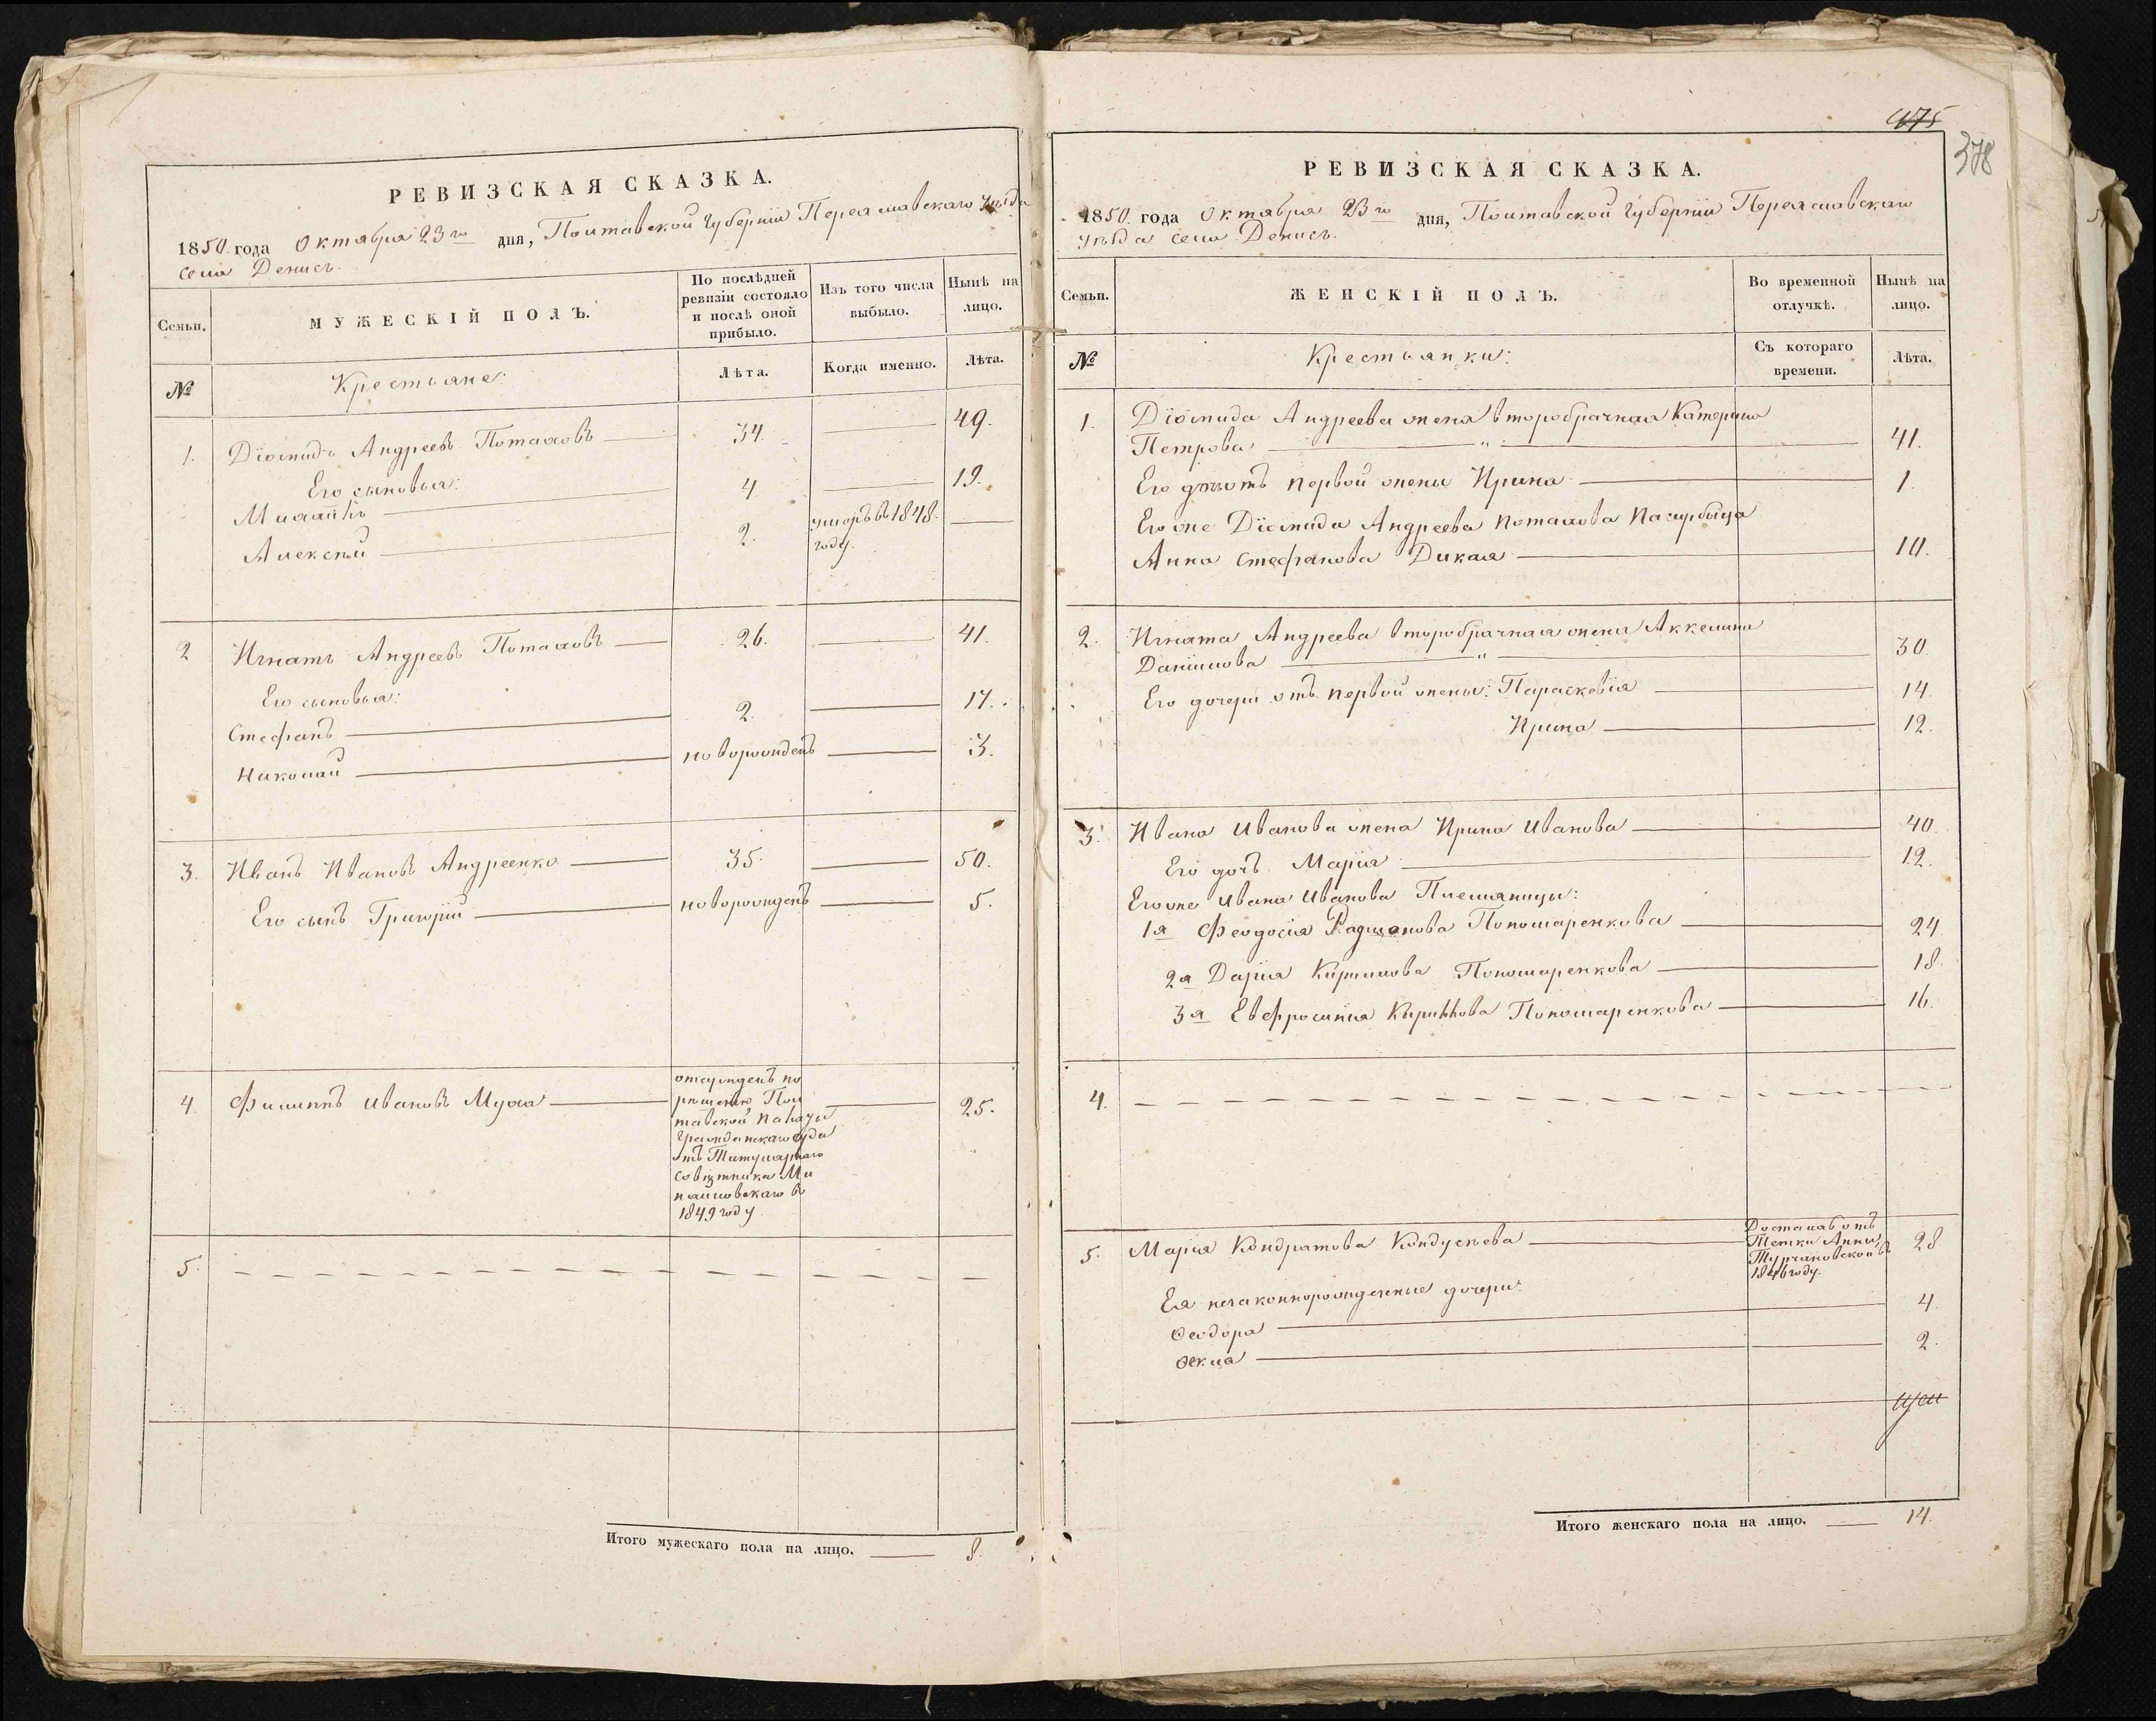 РЕВИЗСКАЯ СКАЗКА.
1850 года Октября 23го дня, Полтавской Губернiи Переяславскаго Уѣзда
села Денисъ.
Семьи.
МУЖЕСКІЙ ПОЛЪ.
По послѣдней
ревизіи состояло
и послѣ оной
прибыло.
Изъ того числа
выбыло.
Нынѣ на
лицо.
№
Крестьяне:
Лѣта.
Когда именно.
Лѣта.
1. Дiомидъ Андреевъ Потаповъ 34. 49.
Его сыновья:
4. 19.
Алексѣй 2. умеръ въ 1848.
году.
2 Игнатъ Андреевъ Потаповъ 26. 41.
Его сыновья:
Стефанъ 2. 17.
Николай новорожденъ 3.
3. Иванъ Ивановъ Андреенко 35. 50.
Его сынъ Григорiй новорожденъ 5.
4 Филиппъ Ивановъ Муха 25.
отсужденъ по
рѣшенiю Пол
тавской Палаты
Гражданскаго Суда
отъ Титулярнаго
Совѣтника
въ
1849 году.
5.
Итого мужескаго пола на лицо. 8.
475
378
РЕВИЗСКАЯ СКАЗКА.
1850. года Октября 23го дня, Полтавской Губернiи Переяславскаго
уѣзда села Денисъ.
Семьи.
ЖЕНСКІЙ ПОЛЪ.
Во временной
отлучкѣ.
Нынѣ на
лицо.
№
Крестьянки:
Съ котораго
времени.
Лѣта.
1. Дiомида Андреева жена второбрачная Катерина
Петрова " 41.
Его дочь отъ первой жены Ирина 1.
Его же Дiомида Андреева Потапова
Анна Стефанова Дикая 10.
2. Игната Андреева второбрачная жена Аккелина
Данiилова " 30
Его дочери отъ первой жены: Параскевiя 14.
Ирина 12.
3. Ивана Иванова жена Ирина Иванова 40.
Его дочь Марiя 12.
Его же Ивана Иванова Племяницы:
1я Феодосiя Пономаренкова 24
2я Дарiя Кирилова Пономаренкова 18.
3я Евфросинiя Кирилова Пономаренкова 16.
4.
5. Марiя Кондратова 28.
отъ
Тетки Анны
въ
1846 году.
Ея незаконнорожденные дочери:
Феодора 4.
Фекла 2.
Итого женскаго пола на лицо. 14.